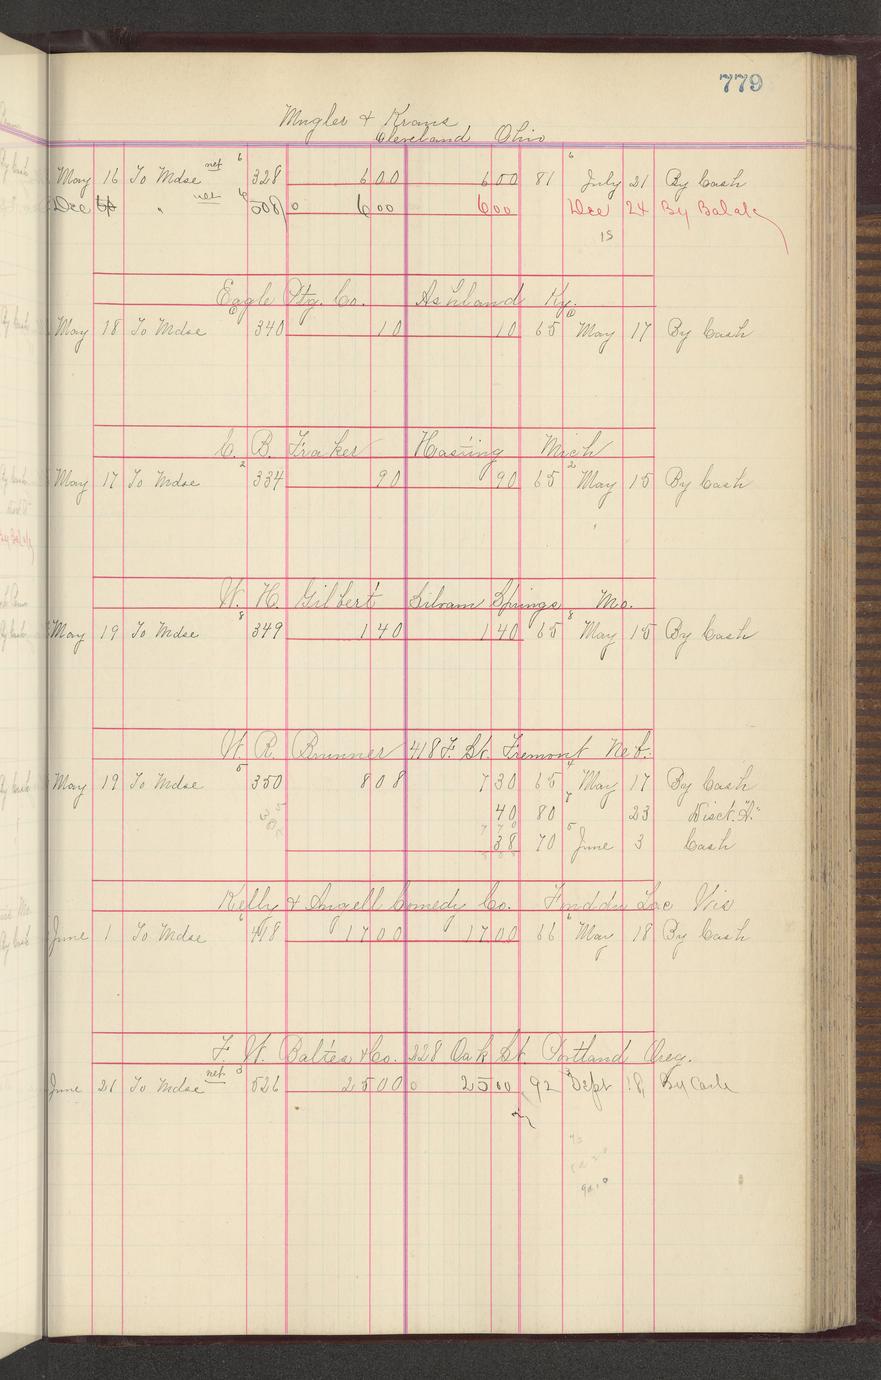 779
Mugler & Krans
Cleveland Ohio
May 16 To Mdse net 6 328 600 600 81 6 July 21 By Cash
Dec " net 508 0 600 600 Dec 24 By Bal
15
Eagle Ptg. Co. Ashland Ky.
May 18 To Mdse 6 340 10 10 65 6 May 17 By Cash
C. B. Fraker Hasting Mich
May 17 To Mdse 2 334 90 90 65 2 May 15 By Cash
W. H. Gilbert Siloam Springs Mo.
May 19 To Mdse 8 349 140 140 65 8 May 15 By Cash
W. R. Brunner 418 F. St. Fremont Neb.
May 19 To Mdse 5 350 808 730 65 4 May 17 By Cash
40 80 7 23 Disct. "A."
770
38 70 5 June 3 Cash
Kelly & Angell Comedy Co. Fonddu Lac Vis
June 1 To Mdse 6 418 1700 1700 66 6 May 18 By Cash
F. W. Baltes & Co. 228 Oak St. Portland Oreg.
June 21 To Mdse net 3 526 2500 0 2500 92 3 Sept 18 By Cash